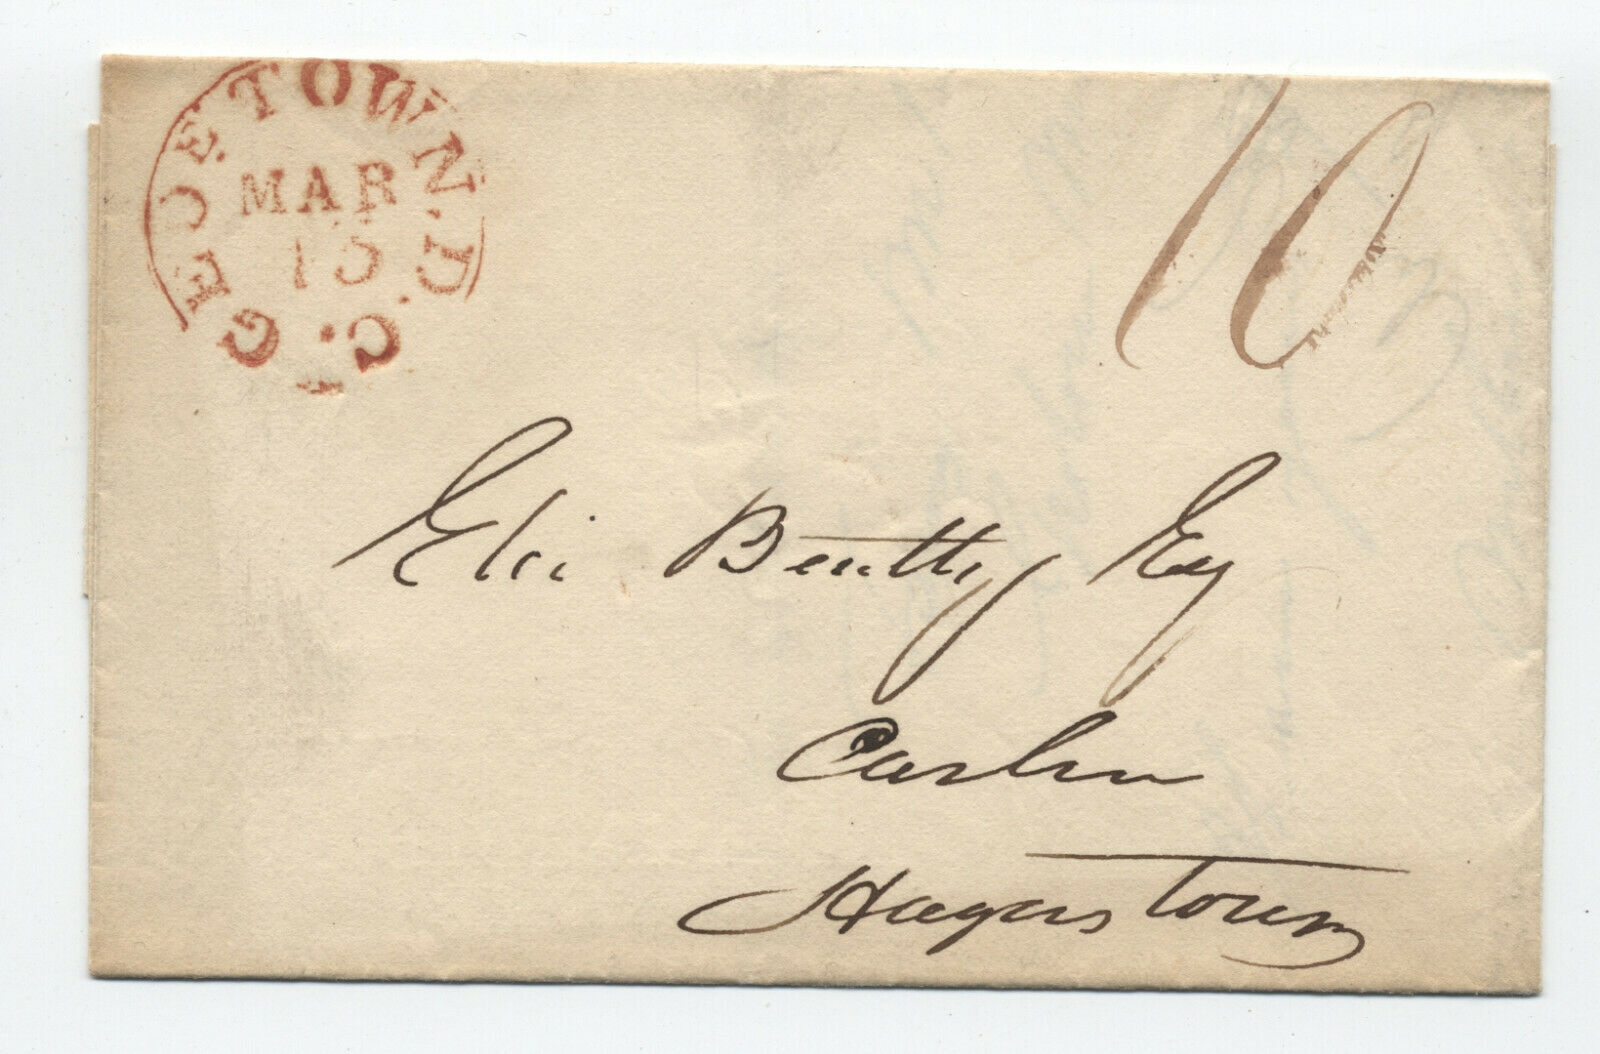 GEOETOWN. D. C.
MAR
15
10
Eli Beatty Esq
Cashr
Hagerstown